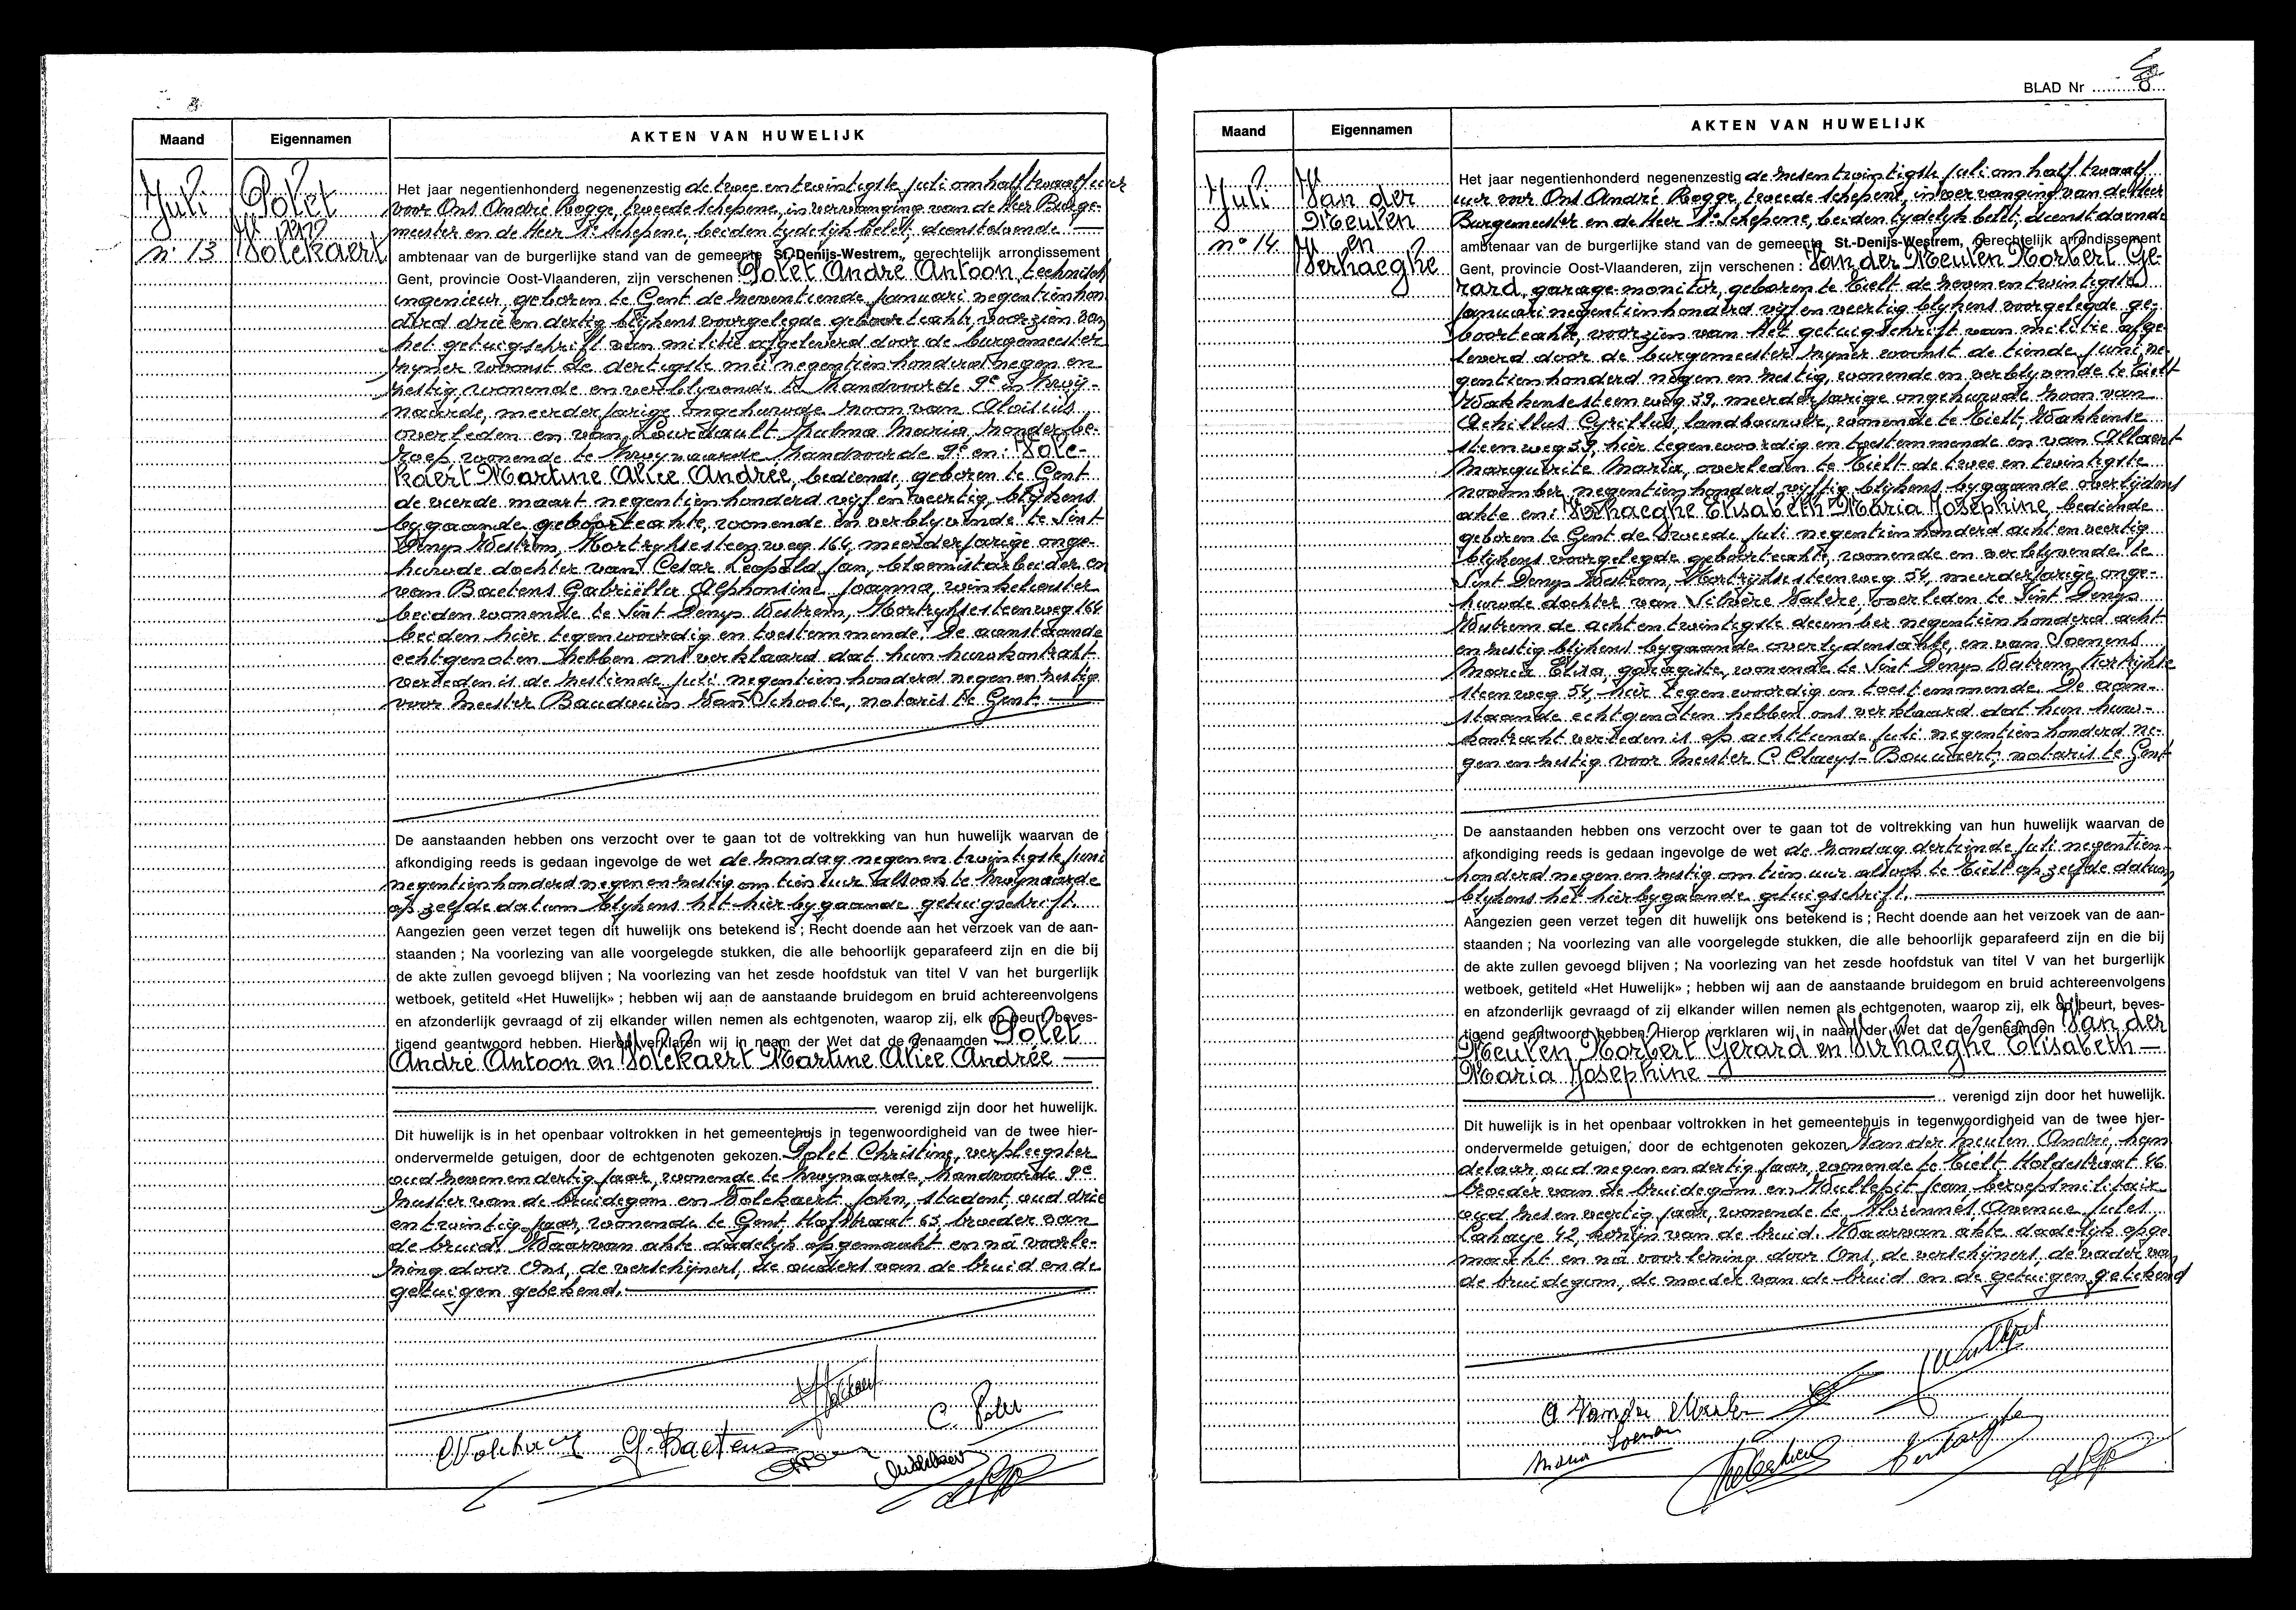 Maand
Eigennamen
AKTEN VAN HUWELIJK
Juli
n° 13
Polet
en
Volekaert
Het jaar negentienhonderd negenenzestig de twee en twintigste juli om half twaalf uur
voor Ons André Rogge, tweede schepene, in vervanging van de Heer Burge-
meester en de Heer 1e Schepene, beiden tydelyk belet, dienstdoende
ambtenaar van de burgerlijke stand van de gemeente St.-Denijs-Westrem, gerechtelijk arrondissement
Gent, provincie Oost-Vlaanderen, zijn verschenen Polet André Antoon, technisch
ingenieur, geboren te Gent de zeventiende januari negentienhon
derd drie en dertig blykens voorgelegde geboorteakte voorzien van
het getuigschrift van militie afgeleverd door de burgemeester
zyner woonst de dertigste mei negentienhonderd negen en
zestig, wonende en verblyvende te Zwij-
naarde, meerderjarige ongehuwde zoon van Aloisius
overleden en van Maria, zonder be-
roep wonende te Zwynaarde 9e en: Vole-
kaert Martine Alice Andrée, bediende, geboren te Gent
de vierde maart negentienhonderd vyf en veertig, blykens
bygaande geboorteakte, wonende en verblyvende te Sint
Denys Westrem, Kortryksesteenweg 164, meerderjarige onge-
huwde dochter van Cesar Leopold Jan, bloemistarbeider en
van Baetens Gabriëlla Alphonsine Joanna, winkelierster
beiden wonende te Sint Denys Westrem, Kortryksesteenweg 164
beiden hier tegenwoordig en toestemmende. De aanstaande
echtgenoten hebben ons verklaard dat hun huwkontrakt
verleden is de zestiende juli negentienhonderd negen en zestig
voor Meester Baudouin Van Schoote, notaris te Gent.
De aanstaanden hebben ons verzocht over te gaan tot de voltrekking van hun huwelijk waarvan de
afkondiging reeds is gedaan ingevolge de wet de zondag negen en twintigste juni
negentienhonderd negen en zestig om tien uur alsook te Zwynaarde
op zelfde datum blykens het hierbygaande getuigschrift.
Aangezien geen verzet tegen dit huwelijk ons betekend is ; Recht doende aan het verzoek van de aan-
staanden ; Na voorlezing van alle voorgelegde stukken, die alle behoorlijk geparafeerd zijn en die bij
de akte zullen gevoegd blijven ; Na voorlezing van het zesde hoofdstuk van titel V van het burgerlijk
wetboek, getiteld «Het Huwelijk» ; hebben wij aan de aanstaande bruidegom en bruid achtereenvolgens
en afzonderlijk gevraagd of zij elkander willen nemen als echtgenoten, waarop zij, elk op beurt, beves-
tigend geantwoord hebben. Hierop verklaren wij in naam der Wet dat de genaamden Polet
André Antoon en Volekaert Martine Alice Andrée
verenigd zijn door het huwelijk.
Dit huwelijk is in het openbaar voltrokken in het gemeentehuis in tegenwoordigheid van de twee hier-
ondervermelde getuigen, door de echtgenoten gekozen. Polet Christine, verpleegster
oud zeven en dertig jaar, wonende te Zwynaarde, 9e
zuster van de bruidegom en Volekaert John, student, oud drie
en twintig jaar, wonende te Gent Hofstraat 65, broeder van
de bruid. Waarvan akte dadelyk opgemaakt en na voorle-
zing door Ons, de verschijners, de ouders van de bruid en de
getuigen getekend.
G. Baetens
C. Polet
BLAD Nr 8
Maand
Eigennamen
AKTEN VAN HUWELIJK
Juli
n° 14
Van der
Meulen
en
Verhaeghe
Het jaar negentienhonderd negenenzestig de zesentwintigste juli om half twaalf
uur voor Ons André Rogge, tweede schepene, in vervanging van de Heer
Burgemeester en de Heer 1e Schepene, beiden tydelyk belet, dienstdoende
ambtenaar van de burgerlijke stand van de gemeente St.-Denijs-Westrem, gerechtelijk arrondissement
Gent, provincie Oost-Vlaanderen, zijn verschenen : Van der Meulen Norbert Ge-
rard, garage-monitor, geboren te Tielt de zeven en twintigste
januari negentienhonderd vyf en veertig blykens voorgelegde ge-
boorteakte, voorzien van het getuigschrift van militie afge-
leverd door de burgemeester zyner woonst de tiende juni ne-
gentienhonderd negen en zestig, wonende en verblyvende te Tielt
Wakkensesteenweg 59, meerderjarige ongehuwde zoon van
Achillus Cyrillus, landbouwer, wonende te Tielt, Wakkense
steenweg 59, hier tegenwoordig en toestemmende en van Allaert
Marguerite Maria, overleden te Tielt de twee en twintigste
november negentienhonderd vyftig blykens bygaande overlijdens
akte en: Verhaeghe Elisabeth Maria Josephine, bediende
geboren te Gent de tweede juli negentienhonderd acht en veertig
blykens voorgelegde geboorteakte, wonende en verblyvende te
Sint Denys Westrem, Kortrijksesteenweg 54, meerderjarige onge-
huwde dochter van Silvère Valère, overleden te Sint Denys
Westrem de acht en twintigste december negentienhonderd acht
en zestig blykens bygaande overlydensakte, en van Soenens
Maria Elisa, garagiste, wonende te Sint Denys Westrem, Kortrijkse
steenweg 54, hier tegenwoordig en toestemmende. De aan-
staande echtgenoten hebben ons verklaard dat hun huw-
kontrakt verleden is op achttiende juli negentienhonderd ne-
gen en zestig voor Meester C. Claeys-Bouuaert, notaris te Gent
De aanstaanden hebben ons verzocht over te gaan tot de voltrekking van hun huwelijk waarvan de
afkondiging reeds is gedaan ingevolge de wet de zondag dertiende juli negentien-
honderd negen en zestig om tien uur alsook te Tielt op zelfde datum
blykens het hierbygaande getuigschrift.
Aangezien geen verzet tegen dit huwelijk ons betekend is ; Recht doende aan het verzoek van de aan-
staanden ; Na voorlezing van alle voorgelegde stukken, die alle behoorlijk geparafeerd zijn en die bij
de akte zullen gevoegd blijven ; Na voorlezing van het zesde hoofdstuk van titel V van het burgerlijk
wetboek, getiteld «Het Huwelijk» ; hebben wij aan de aanstaande bruidegom en bruid achtereenvolgens
en afzonderlijk gevraagd of zij elkander willen nemen als echtgenoten, waarop zij, elk op beurt, beves-
tigend geantwoord hebben. Hierop verklaren wij in naam der Wet dat de genaamden Van der
Meulen Norbert Gerard en Verhaeghe Elisabeth
Maria Josephine
verenigd zijn door het huwelijk.
Dit huwelijk is in het openbaar voltrokken in het gemeentehuis in tegenwoordigheid van de twee hier-
ondervermelde getuigen, door de echtgenoten gekozen Van der Meulen André, han
delaar, oud negen en dertig jaar, wonende te Tielt Holdestraat 46
broeder van de bruidegom en Wullepit Jean, beroepsmilitair
oud zes en veertig jaar, wonende te Florennes, Avenue Jules
Lahaye 42, kozijn van de bruid. Waarvan akte dadelijk opge
maakt en na voorlezing door Ons, de verschijners, de vader van
de bruidegom, de moeder van de bruid en de getuigen getekend
Maria Soenens
Verhaeghe